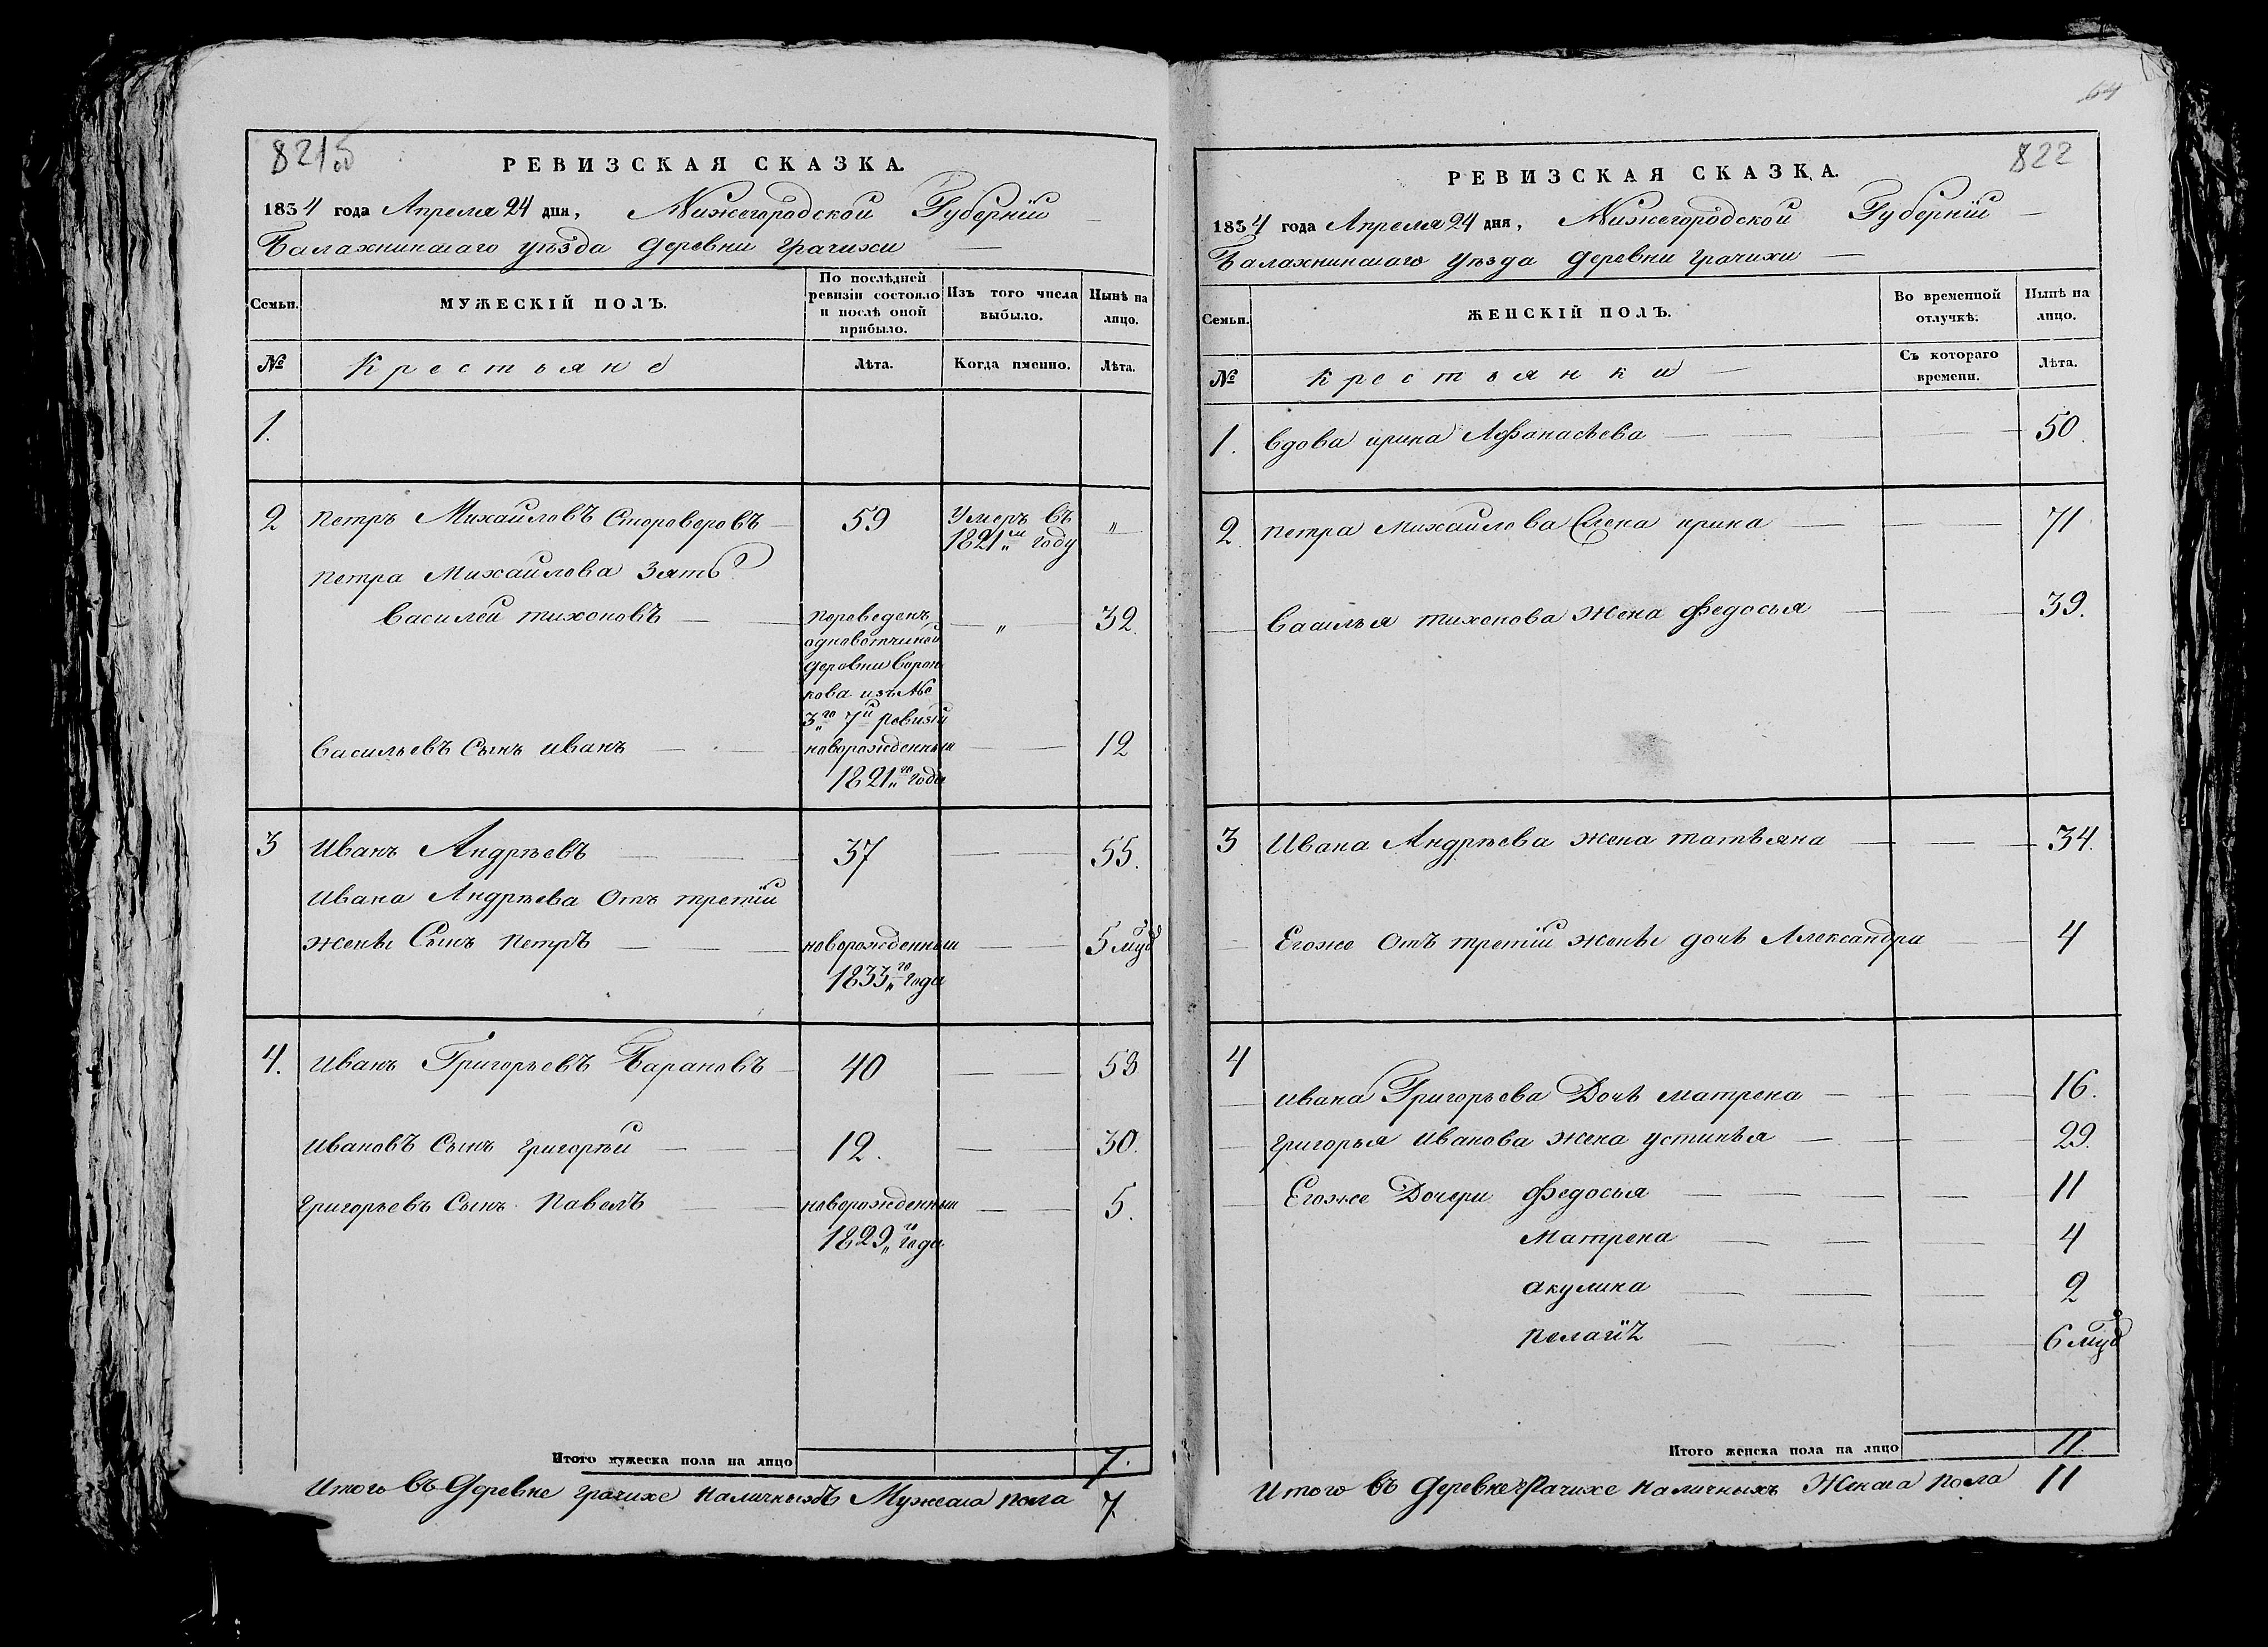 821 об
РЕВИЗСКАЯ СКАЗКА.
1834 года Апреля 24 дня, Нижегородской Губернїи
Балахнинскаго уѣзда деревни Грачихи
Семьи.
МУЖЕСКІЙ ПОЛЪ.
По послѣдней ревизіи состояло и послѣ оной прибыло.
Изъ того числа выбыло.
Нынѣ на лицо.
№ Крестьяне Лѣта. Когда именно. Лѣта.
1.
2 Петръ Михайловъ Староверовъ 59 Умеръ въ 1821м году „
Петра Михайлова Зять
Василей Тихоновъ Переведенъ „ 32.
одновотчиной
деревни Ворон
кова изъ №
3го 7й ревизїи
Васильевъ Сынъ Иванъ новорожденный 12
1821го года
3 Иванъ Андрѣевъ 37 55.
Ивана Андрѣева Отъ третїй
жены Сынъ Петръ новорожденный 5 мцов
1833го года
4. Иванъ Григорьевъ Барановъ 40 58
Ивановъ Сынъ Григорѣй 12. 30.
Григорьевъ Сынъ Павелъ новорожденный 5.
1829го года
Итого мужеска пола на лицо 7.
Итого въ Деревне Грачихе Наличныхъ Мужска пола 7.
64
822
РЕВИЗСКАЯ СКАЗКА.
1834 года Апреля 24 дня, Нижегородской Губернїи
Балахнинскаго Уѣзда деревни Грачихи
Семьи.
ЖЕНСКІЙ ПОЛЪ.
Во временной отлучкѣ.
Нынѣ на лицо.
№ Крестьянки Съ котораго времени. Лѣта.
1. Вдова Ирина Афонасьева 50.
2. Петра Михайлова Жена Ирина 71
Василья Тихонова Жена Федосья 39.
3 Ивана Андрѣева жена Татьяна 34.
Егоже Отъ третїй жены дочь Александра 4
4
Ивана Григорьева Дочь Матрена 16.
Григорья Иванова жена Устинья 29.
Егоже Дочери Федосья 11
Матрена 4
Акулина 2
Пелагїя 6 мцов
Итого женска пола на лицо 11.
Итого въ Деревне Грачихе Наличныхъ Женска Пола 11